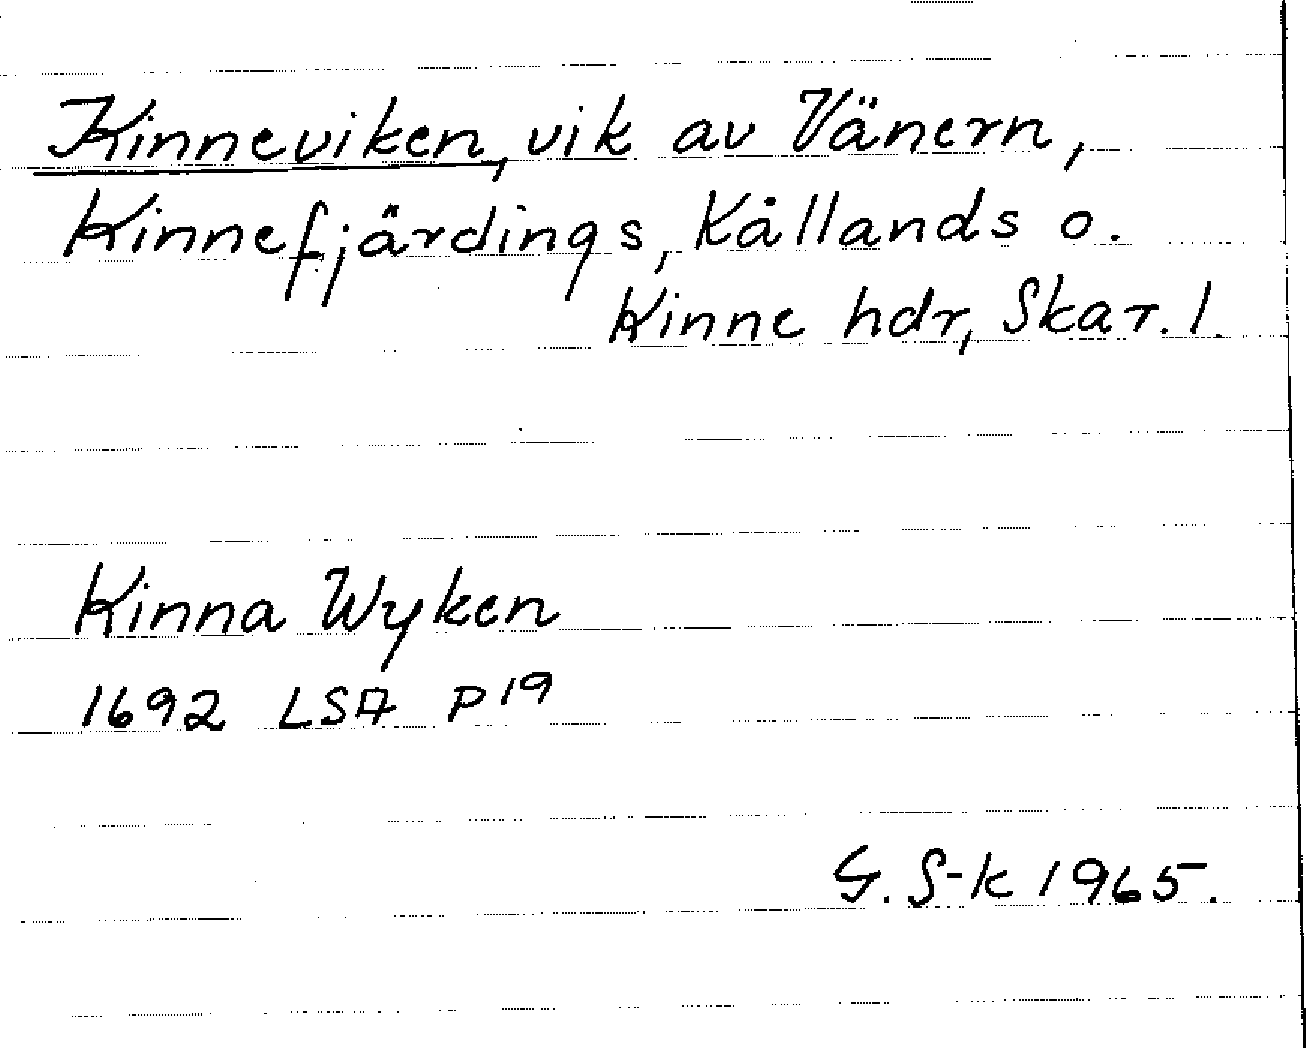 Kinneviken, vik av Vänern,
Kinnefjärdings, Kållands o.
Kinne hdr, Skar. l.
Kinna Wyken
1692 LSA P 19
G. S-k 1965.